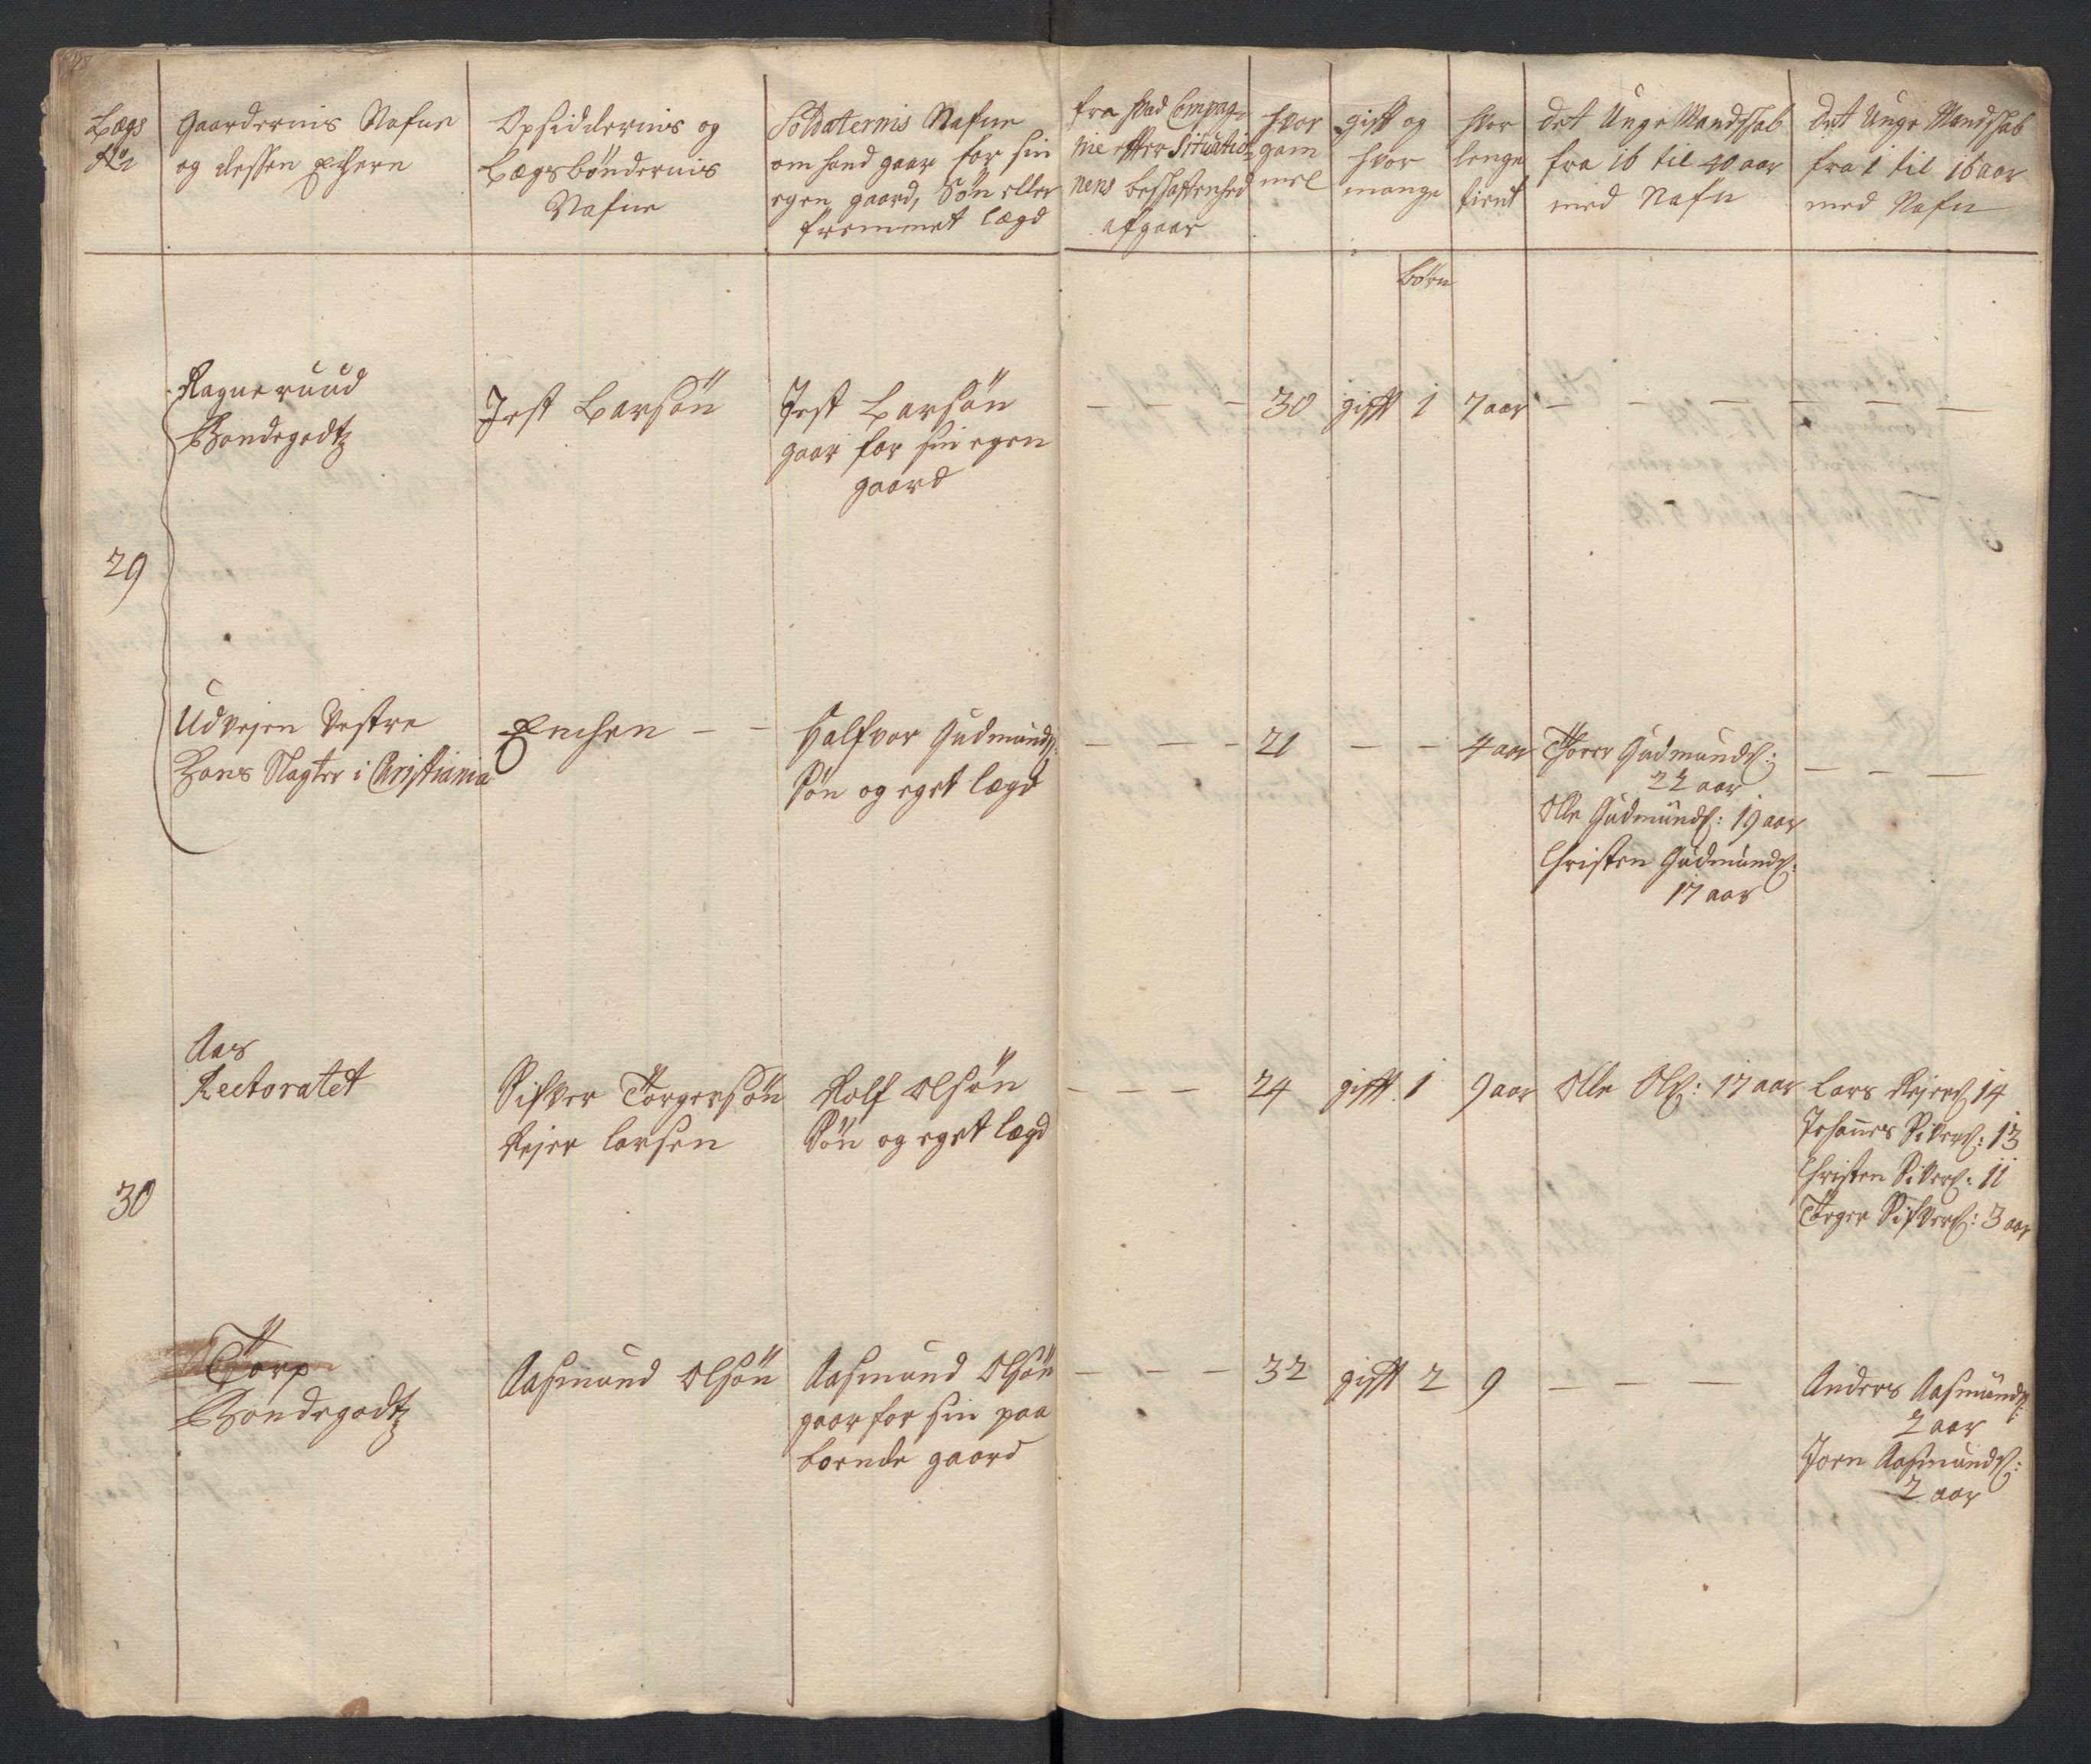 Lægs
No
Gaardernis Nafne
og dessen Eÿhern
Opsiddernis og
Lægsbøndernis
Nafne
Soldaternis Nafne
om hand gaar for sin
egen gaard, Søn eller
fremmet lægd
fra hvad Compag-
nie effter Situatio-
nens beskaffenhed
afgaar
hvor
gam
mel
gift og
hvor
mange
hvor
lenge
tient
det Unge Mandskab
fra 16 til 40 aar
med Nafn
det Unge Mandskab
fra 1 til 16 aar
med Nafn
børn
29
Ragneruud
Bondegodtz
Jest Larsøn
Jest Larsøn
gaar for sin egen
gaard
— — — 30 gifft 1 7 aar — — — — — —
Udvejen Vestre
Hans Slagter i Christiania
Enchen — —
Halfvor Gudmunds:
Søn og eget lægd
— — — 21 — — 4 aar
Thorer Gudmunds:
22 aar
Olle Gudmunds: 19 aar
Christen Gudmunds:
17 aar
— — —
30
Aas
Rectoratet
Sifver Torgersøn
Rejer Larsen
Rolf Olsøn
Søn og eget lægd
— — — 24 gifft 1 9 aar
Olle Ols: 17 aar
Lars Rejers 14
Johannes Sivers: 13
Christen Sivers: 11
Torger Sifvers: 3 aar
Torp
Bondegodtz
Aasmund Olsøn
Aasmund Olsøn
gaar for sin paa
boende gaard
— — — 32 gifft 2 9 — — —
Anders Aasmunds:
2 aar
Jorn Aasmunds:
2 aar